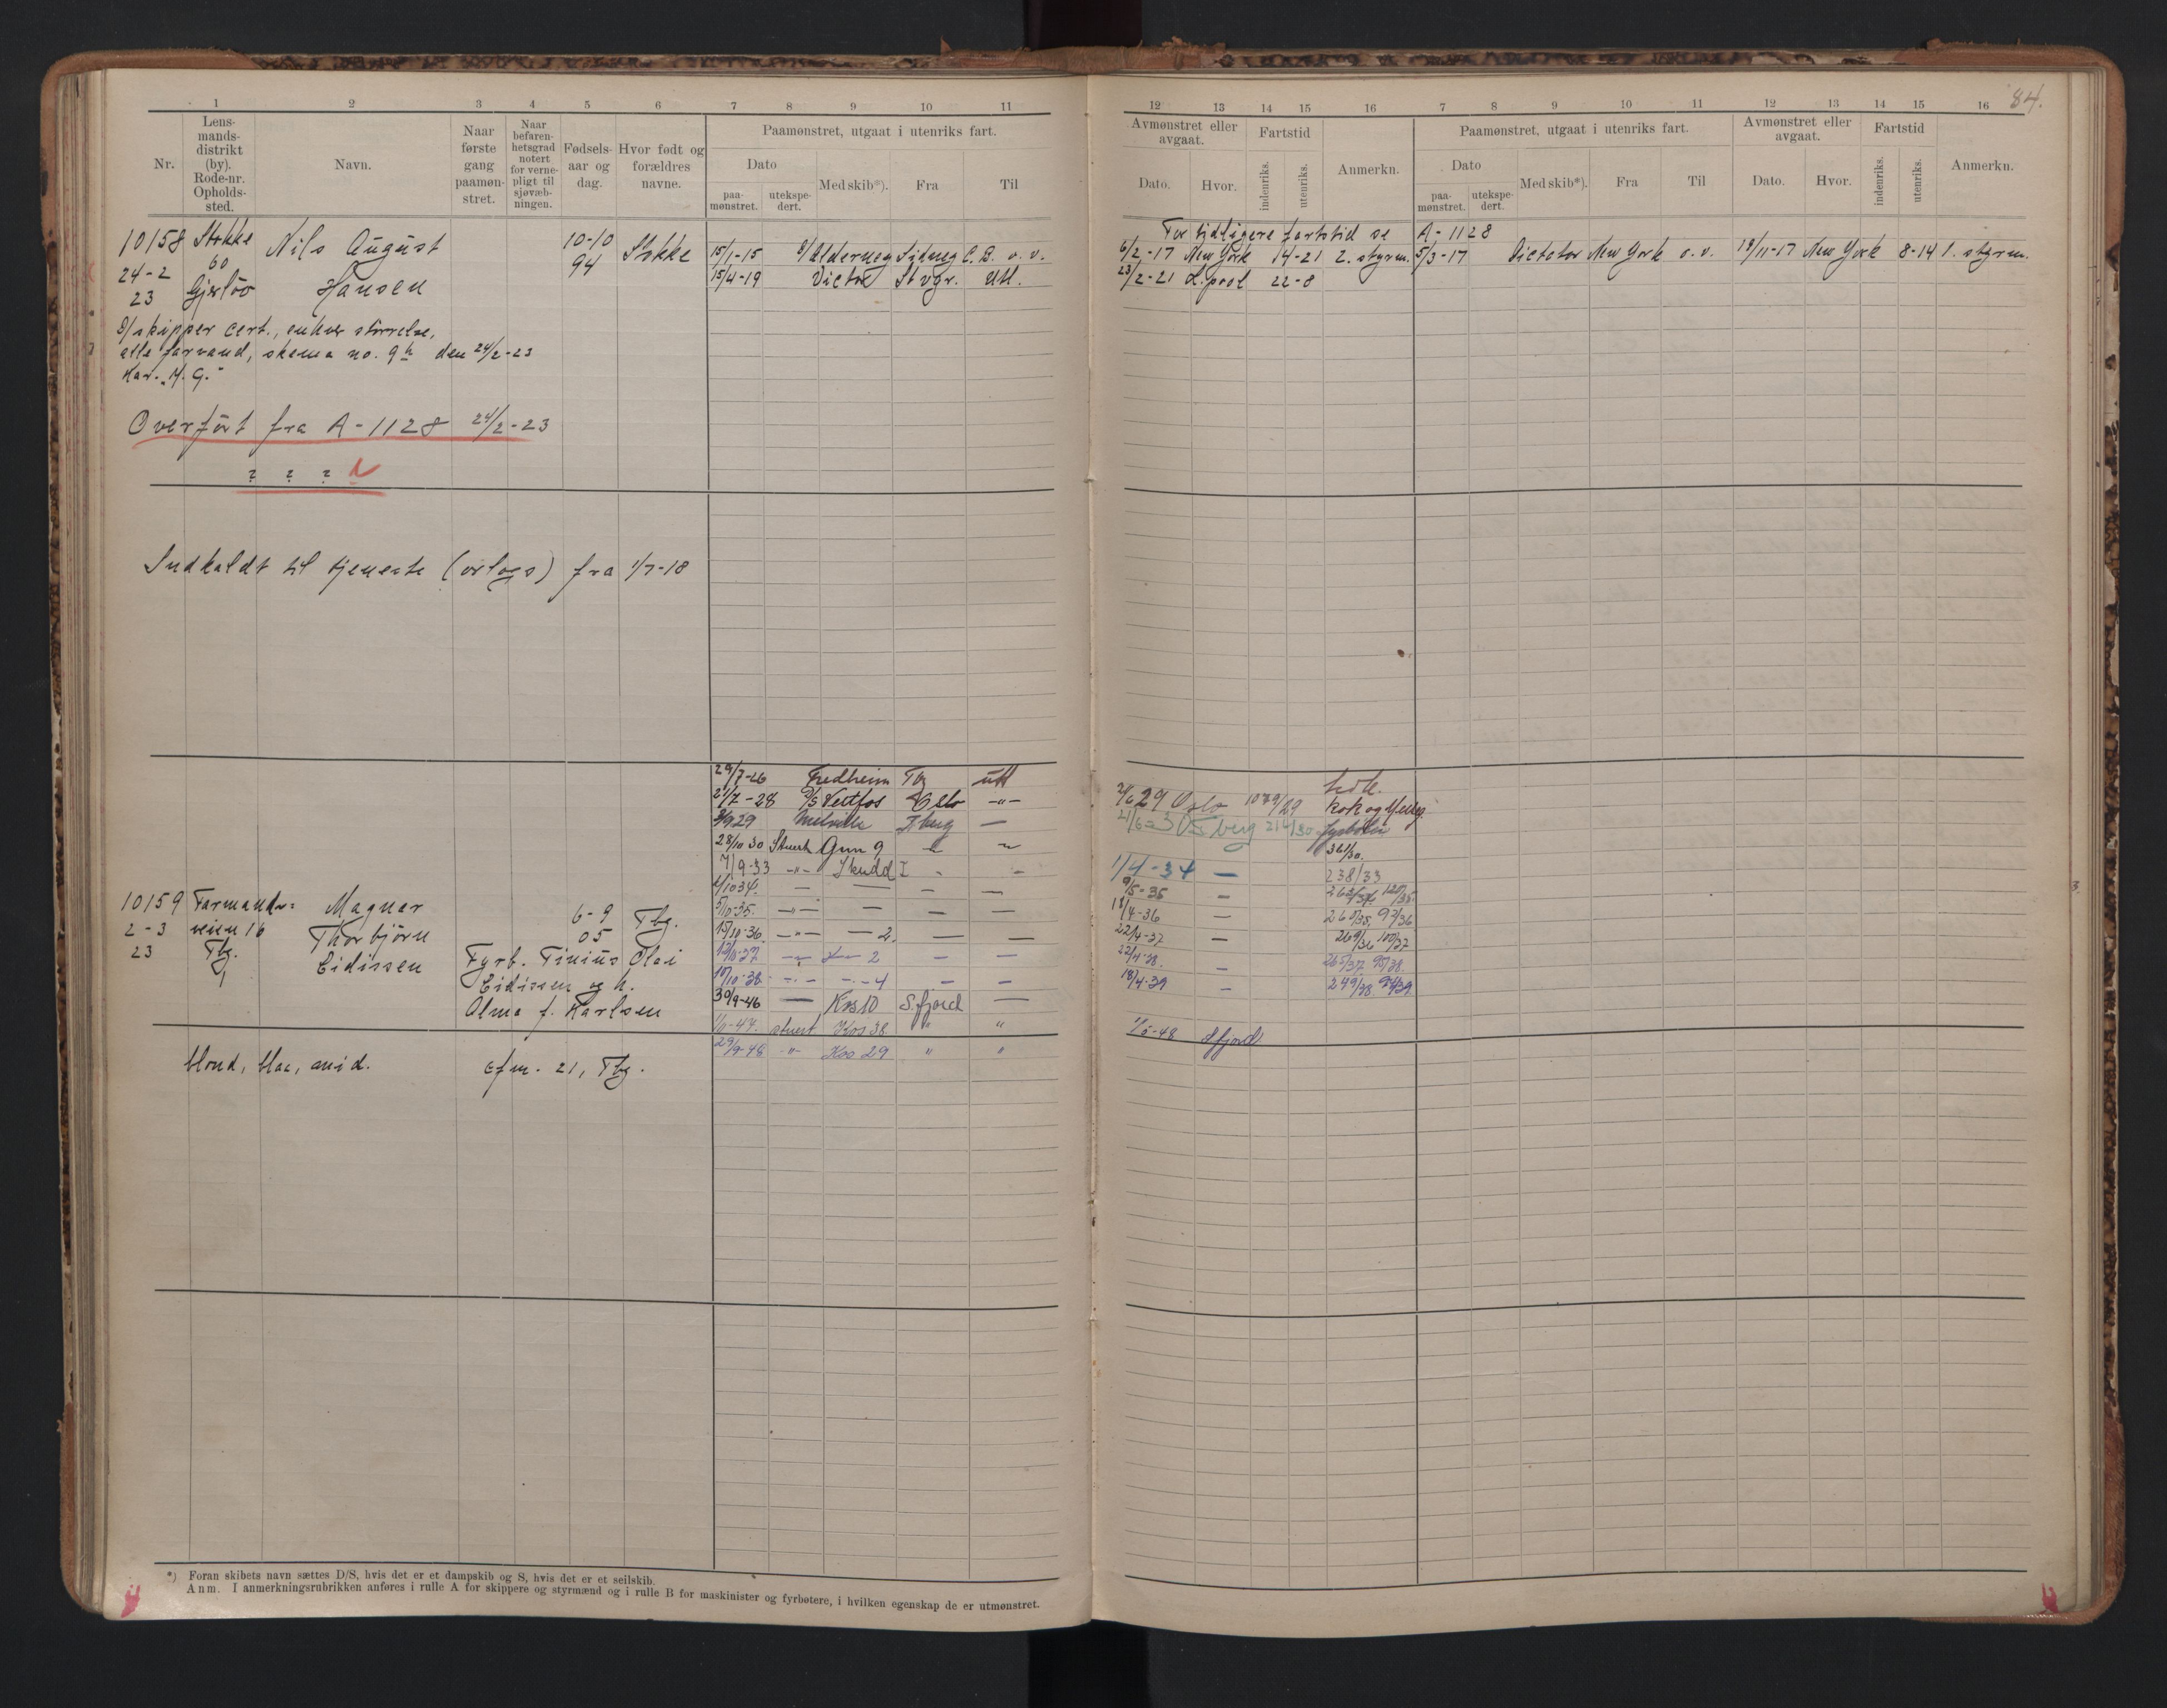 84.
1 2 3 4 5 6 7 8 9 10 11
12 13 14 15 16 7 8 9 10 11 12 13 14 15 16
Nr.
Lens-
mands-
distrikt
(by).
Rode-nr.
Opholds-
sted.
Navn.
Naar
første
gang
paamøn-
stret.
Naar
befaren-
hetsgrad
notert
for verne-
pligt til
sjøvæb-
ningen.
Fødsels-
aar og
dag.
Hvor født og
forældres
navne.
Paamønstret, utgaat i utenriks fart.
Dato
paa-
mønstret.
utekspe-
dert.
Med skib*).
Fra
Til
Avmønstret eller
avgaat.
Dato.
Hvor.
Fartstid
indenriks.
utenriks.
Anmerkn.
Paamønstret, utgaat i utenriks fart.
Dato
paa-
mønstret.
utekspe-
dert.
Med skib*).
Fra
Til
Avmønstret eller
avgaat.
Dato.
Hvor.
Fartstid
indenriks.
utenriks.
Anmerkn.
For tidligere fartstid se A-1128
10158 Stokke Nils August 10-10 Stokke 15/1-15 S/ Alderney Sidney C.B. o.v. 6/2-17 New York 14-21 2. styrm. 5/3-17 Dictator New York o.v. 18/11-17 New York 8-14 1. styrm.
24-2 60 94 15/4-19 Victor St vgr. Utl. 23/2-21 L.pool 22-8
23 Gjerløv Hansen
S/skipper cert., enhver størrelse,
alle farvand, skema no. 9 h den 24/2-23
Kar. "M.G."
Overført fra A-1128 24/2-23
? ? ?
Indkaldt til tjeneste (orlogs) fra 1/7-18
29/7-26 Fredheim Tbg utl
21/7-28 D/S Vestfos Oslo -"- 29 Oslo 29 kok og
29 Melville Tberg — berg 30
28/10 30 Stuert Gun 9 361/30.
7/9-33 -"- Skudd I 1/4-34 — 238/33
34 — — — — 9/5-35 —
10159 Farmands- Magnar 6-9 Tbg. 5/10-35. -"- — — — 18/4-36 — 260/35, 92/36
2-3 veien 16 Thorbjørn 05 15/10-36 -"- — 2. — — 22/4-37 — 269/36 100/37
23 Tbg. Eidissen Fyrb. Tinius Olai 12/10-37 -"- — 2 — — 22/4-38. — 265/37 95/38.
Eidissen og h. 10/10-38 -"- — 4 — — 18/4-39 — 249/38 94/39
Alma f. Karlsen 30/9-46 — Kos 10 S.fjord —
-47. stuert Kos 38 " " -48 Sfjord
29/9-48 -"- Kos 29 " "
blond, blaa, mid. cfm. 21, Tbg.
*) Foran skibets navn sættes D/S, hvis det er et dampskib og S, hvis det er et seilskib.
Anm. I anmerkningsrubrikken anføres i rulle A for skippere og styrmænd og i rulle B for maskinister og fyrbøtere, i hvilken egenskap de er utmønstret.